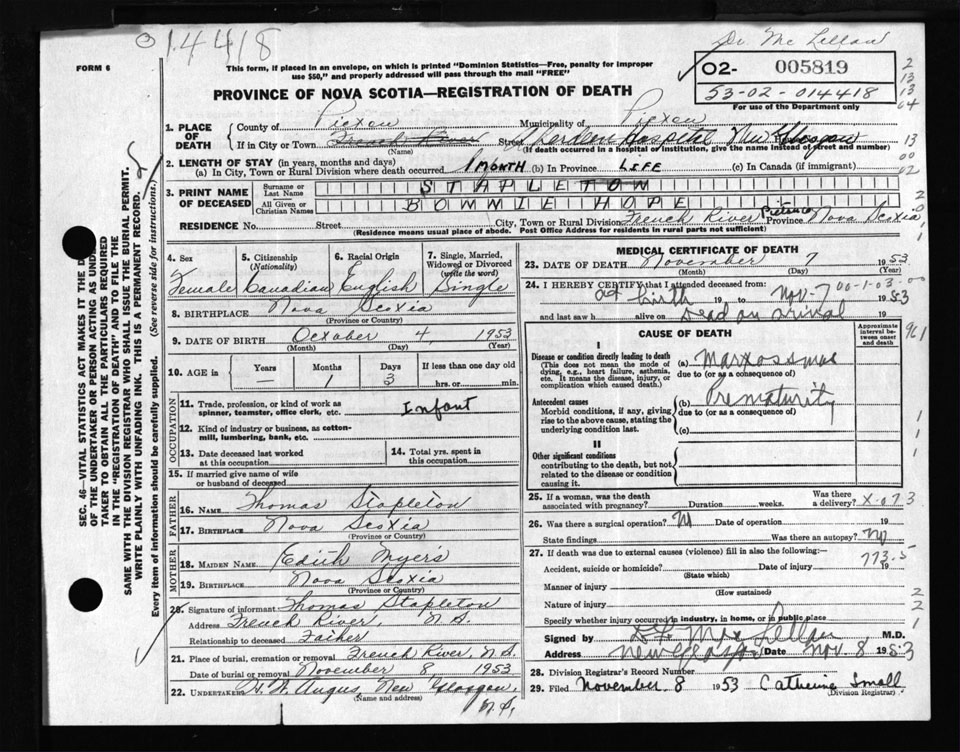 014418
Dr Mc Lellan
FORM 6
This form, if placed in an envelope, on which is printed "Dominion Statistics—Free, penalty for improper
use $50," and properly addressed will pass through the mail "FREE"
02- 005819
53-02-014418
For use of the Department only
PROVINCE OF NOVA SCOTIA—REGISTRATION OF DEATH
2
13
13
04
1. PLACE OF DEATH
County of Pictou Municipality of Pictou
If in City or Town French River Street Aberdeen Hospital New Glasgow
(Name) (If death occurred in a hospital or institution, give the name instead of street and number)
13
00
02
2. LENGTH OF STAY (in years, months and days)
(a) In City, Town or Rural Division where death occurred 1 MONTH (b) In Province LIFE (c) In Canada (if immigrant)
3. PRINT NAME OF DECEASED
Surname or Last Name STAPLETON
All Given or Christian Names BONNIE HOPE
RESIDENCE No. Street City, Town or Rural Division French River Pictou Province Nova Scotia
(Residence means usual place of abode. Post Office Address for residents in rural parts not sufficient)
SEC. 46—VITAL STATISTICS ACT MAKES IT THE D
OF THE UNDERTAKER OR PERSON ACTING AS UNDE
TAKER TO OBTAIN ALL THE PARTICULARS REQUIRED
IN THE "REGISTRATION OF DEATH" AND TO FILE THE
SAME WITH THE DIVISION REGISTRAR WHO SHALL ISSUE THE BURIAL PERMIT.
WRITE PLAINLY WITH UNFADING INK. THIS IS A PERMANENT RECORD.
Every item of information should be carefully supplied. (See reverse side for instructions.)
4. Sex
Female
5. Citizenship
(Nationality)
Canadian
6. Racial Origin
English
7. Single, Married, Widowed or Divorced
(write the word)
Single
8. BIRTHPLACE Nova Scotia
(Province or Country)
9. DATE OF BIRTH October 4, 1953
(Month) (Day) (Year)
10. AGE in
Years Months Days If less than one day old
— 1 3 hrs. or min.
OCCUPATION
11. Trade, profession, or kind of work as
spinner, teamster, office clerk, etc. Infant
12. Kind of industry or business, as cotton-
mill, lumbering, bank, etc.
13. Date deceased last worked
at this occupation
14. Total yrs. spent in
this occupation
15. If married give name of wife
or husband of deceased
FATHER
16. Name Thomas Stapleton
17. Birthplace Nova Scotia
(Province or Country)
MOTHER
18. Maiden Name Edith Myers
19. Birthplace Nova Scotia
(Province or Country)
20. Signature of informant Thomas Stapleton
Address French River, N.S.
Relationship to deceased Father
21. Place of burial, cremation or removal French River, N.S.
Date of burial or removal November 8, 1953
22. Undertaker H. W. Angus, New Glasgow,
(Name and address)
N.S.
MEDICAL CERTIFICATE OF DEATH
23. DATE OF DEATH November 7 1953
(Month) (Day) (Year)
24. I HEREBY CERTIFY that I attended deceased from: 00-1-03-00
at birth 19 to Nov-7 1953
and last saw h alive on Dead on arrival 19
CAUSE OF DEATH
Approximate interval between onset and death
961
I
Disease or condition directly leading to death
(This does not mean the mode of dying, e.g., heart failure, asthenia, etc. It means the disease, injury, or complication which caused death.)
(a)
due to (or as a consequence of)
Antecedent causes
Morbid conditions, if any, giving rise to the above cause, stating the underlying condition last.
(b) Prematurity
due to (or as a consequence of)
(c)
II
Other significant conditions
contributing to the death, but not related to the disease or condition causing it.
25. If a woman, was the death
associated with pregnancy? Duration weeks. Was there a delivery? X-073
26. Was there a surgical operation? N Date of operation 19
State findings Was there an autopsy? No
27. If death was due to external causes (violence) fill in also the following:—
773.5
Accident, suicide or homicide? Date of injury 19
(State which)
Manner of injury
(How sustained)
Nature of injury
Specify whether injury occurred in industry, in home, or in public place
Signed by Mc Lellan M.D.
Address New Glasgow Date Nov. 8 1953
28. Division Registrar's Record Number
29. Filed November 8 1953 Catherine Small
(Division Registrar)